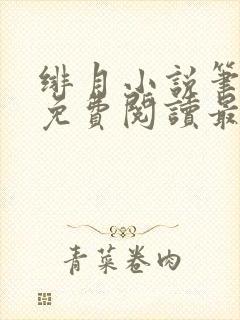 绯月小说笔
免費閱讀最
青菜卷肉